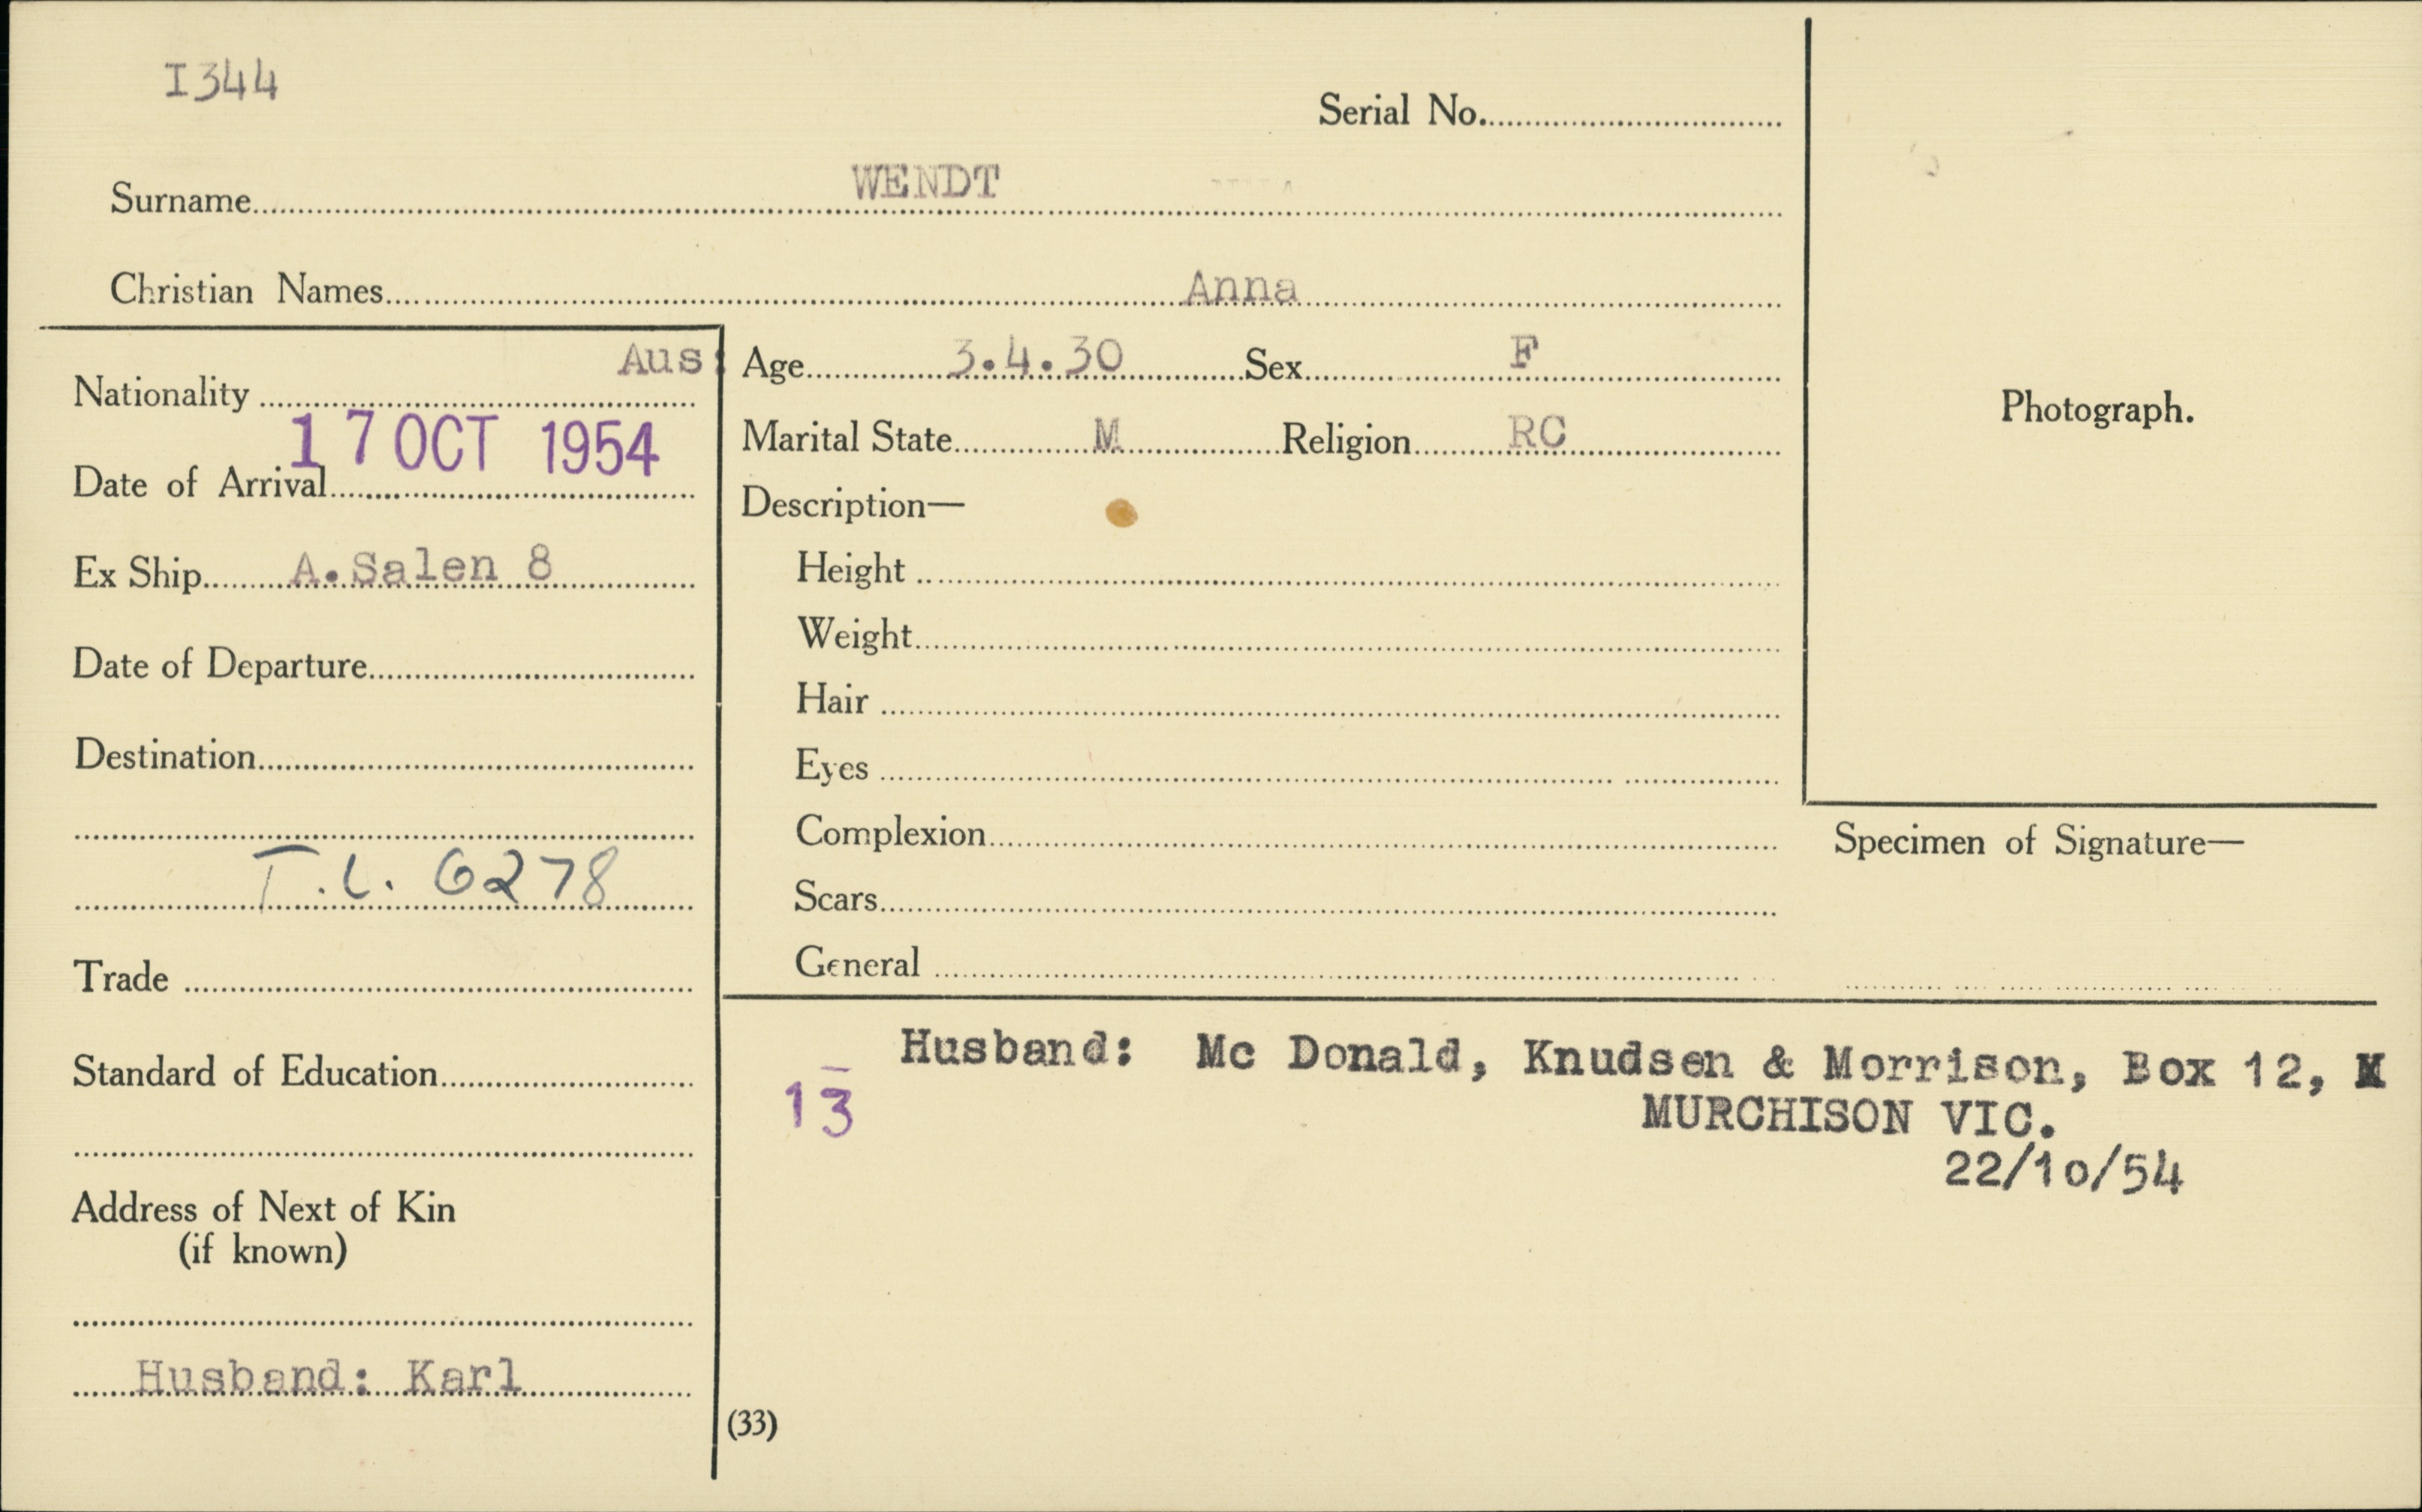 I344
Serial No.
Surname WENDT
Christian Names Anna
Nationality Aus:
Date of Arrival 17 OCT 1954
Ex Ship A.Salen 8
Date of Departure
Destination
T.L. 6278
Trade
Standard of Education
Address of Next of Kin
(if known)
Husband: Karl
Age 3.4.30 Sex F
Marital State M Religion RC
Description—
Height
Weight
Hair
Eyes
Complexion
Scars
General
Photograph.
Specimen of Signature—
Husband: Mc Donald, Knudsen & Morrison, Box 12,
MURCHISON VIC.
22/10/54
13
(33)